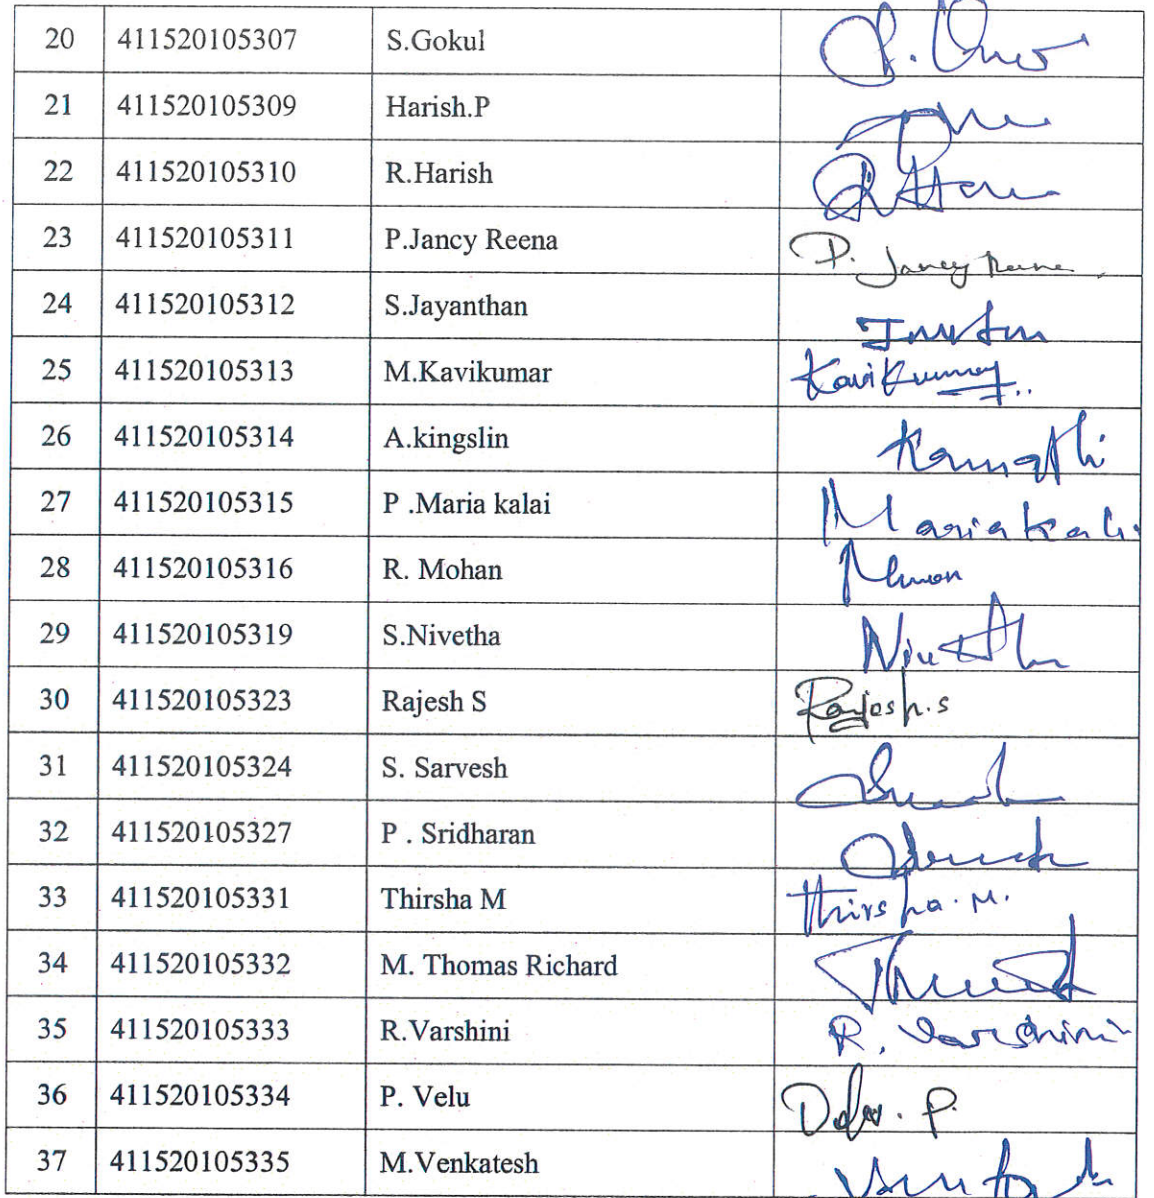 20 411520105307 S.Gokul
21 411520105309 Harish.P
22 411520105310 R.Harish
23 411520105311 P.Jancy Reena P. Jancy Reena
24 411520105312 S.Jayanthan
25 411520105313 M.Kavikumar Kavikumar
26 411520105314 A.kingslin
27 411520105315 P .Maria kalai Maria kalai
28 411520105316 R. Mohan
29 411520105319 S.Nivetha
30 411520105323 Rajesh S Rajesh.S
31 411520105324 S. Sarvesh
32 411520105327 P . Sridharan
33 411520105331 Thirsha M Thirsha.M.
34 411520105332 M. Thomas Richard
35 411520105333 R.Varshini R. Varshini
36 411520105334 P. Velu
37 411520105335 M.Venkatesh